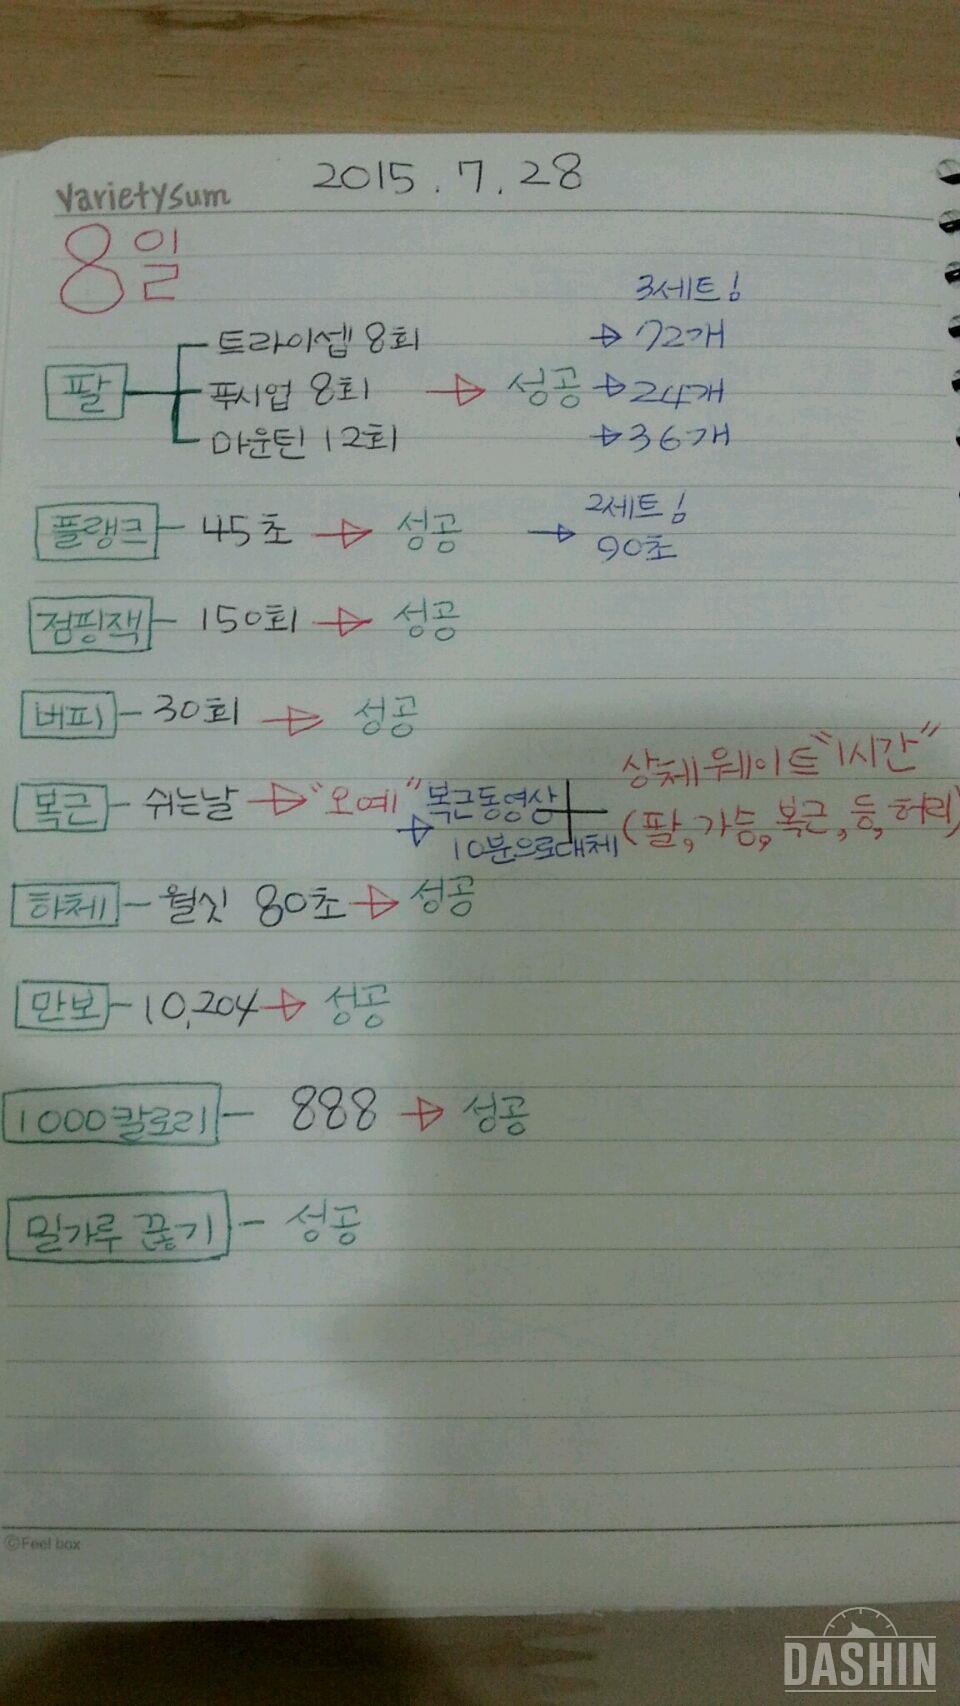 varietysum 2015.7.28
8일
3세트!
트라이셉 8회 → 72개
팔 푸시업 8회 → 성공 → 24개
마운틴 12회 → 36개
2세트!
플랭크 - 45초 → 성공 → 90초
점핑잭 - 150회 → 성공
버피 - 30회 → 성공
상체웨이트 "1시간"
복근 - 쉬는날 → "오예" 복근동영상 + (팔,가슴,복근,등,허리)
→ 10분으로대체
하체 - 월싯 80초 → 성공
만보 - 10,204 → 성공
1000칼로리 - 888 → 성공
밀가루 끊기 - 성공
©Feel box
DASHIN